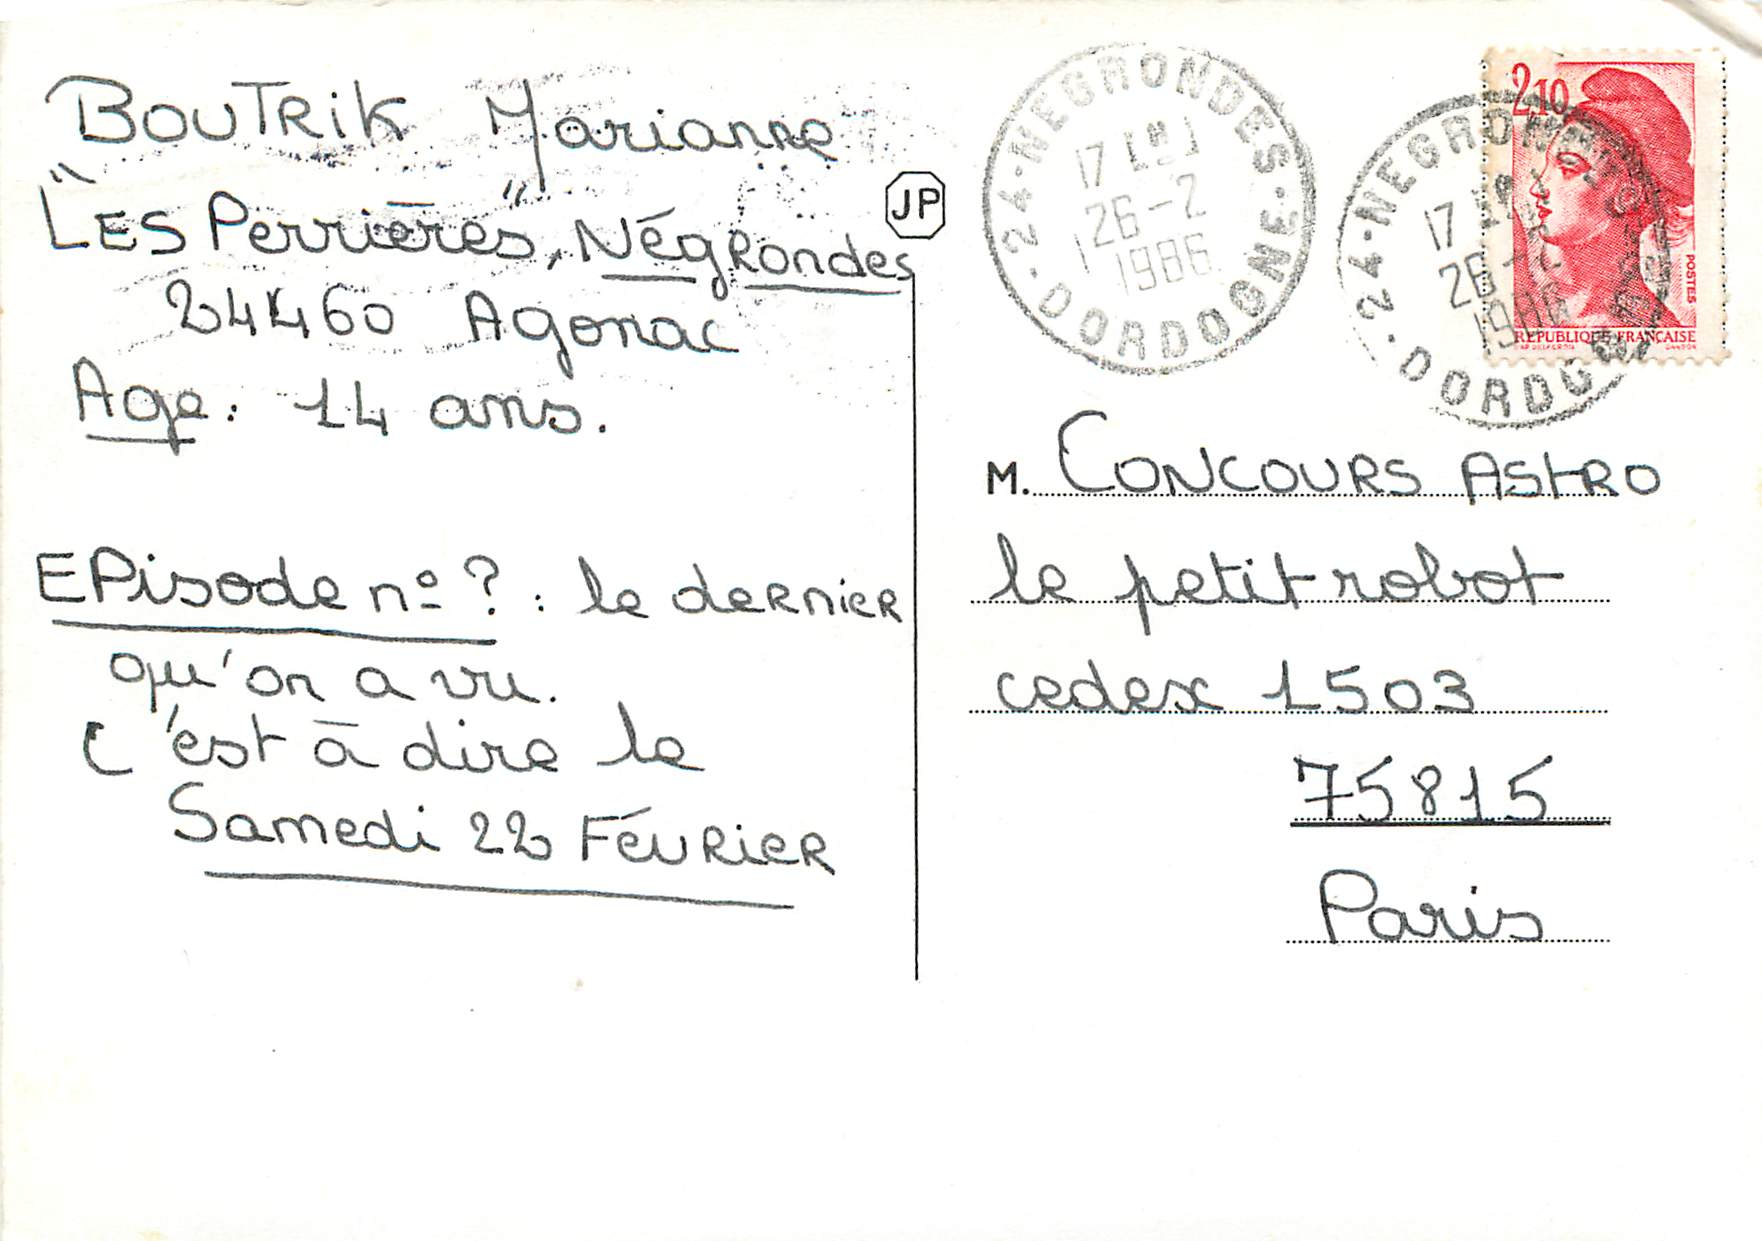 BOUTRIK Marianne
"LES Perrières", NégRondes
24460 Agonac
Age : 14 ans.
EPisode n° ? : le deRnieR
qu'on a vu.
C'est à dire le
Samedi 22 FévRieR
JP
24 · NEGRONDES ·
17 H
26 - 2
1986
· DORDOGNE ·
24 · NEGRONDES
17 H
26 - 2
1986
· DORDOGNE
2,10
POSTES
REPUBLIQUE FRANÇAISE
M. CONCOURS ASTRO
le petit robot
cedex 1503
75815
Paris